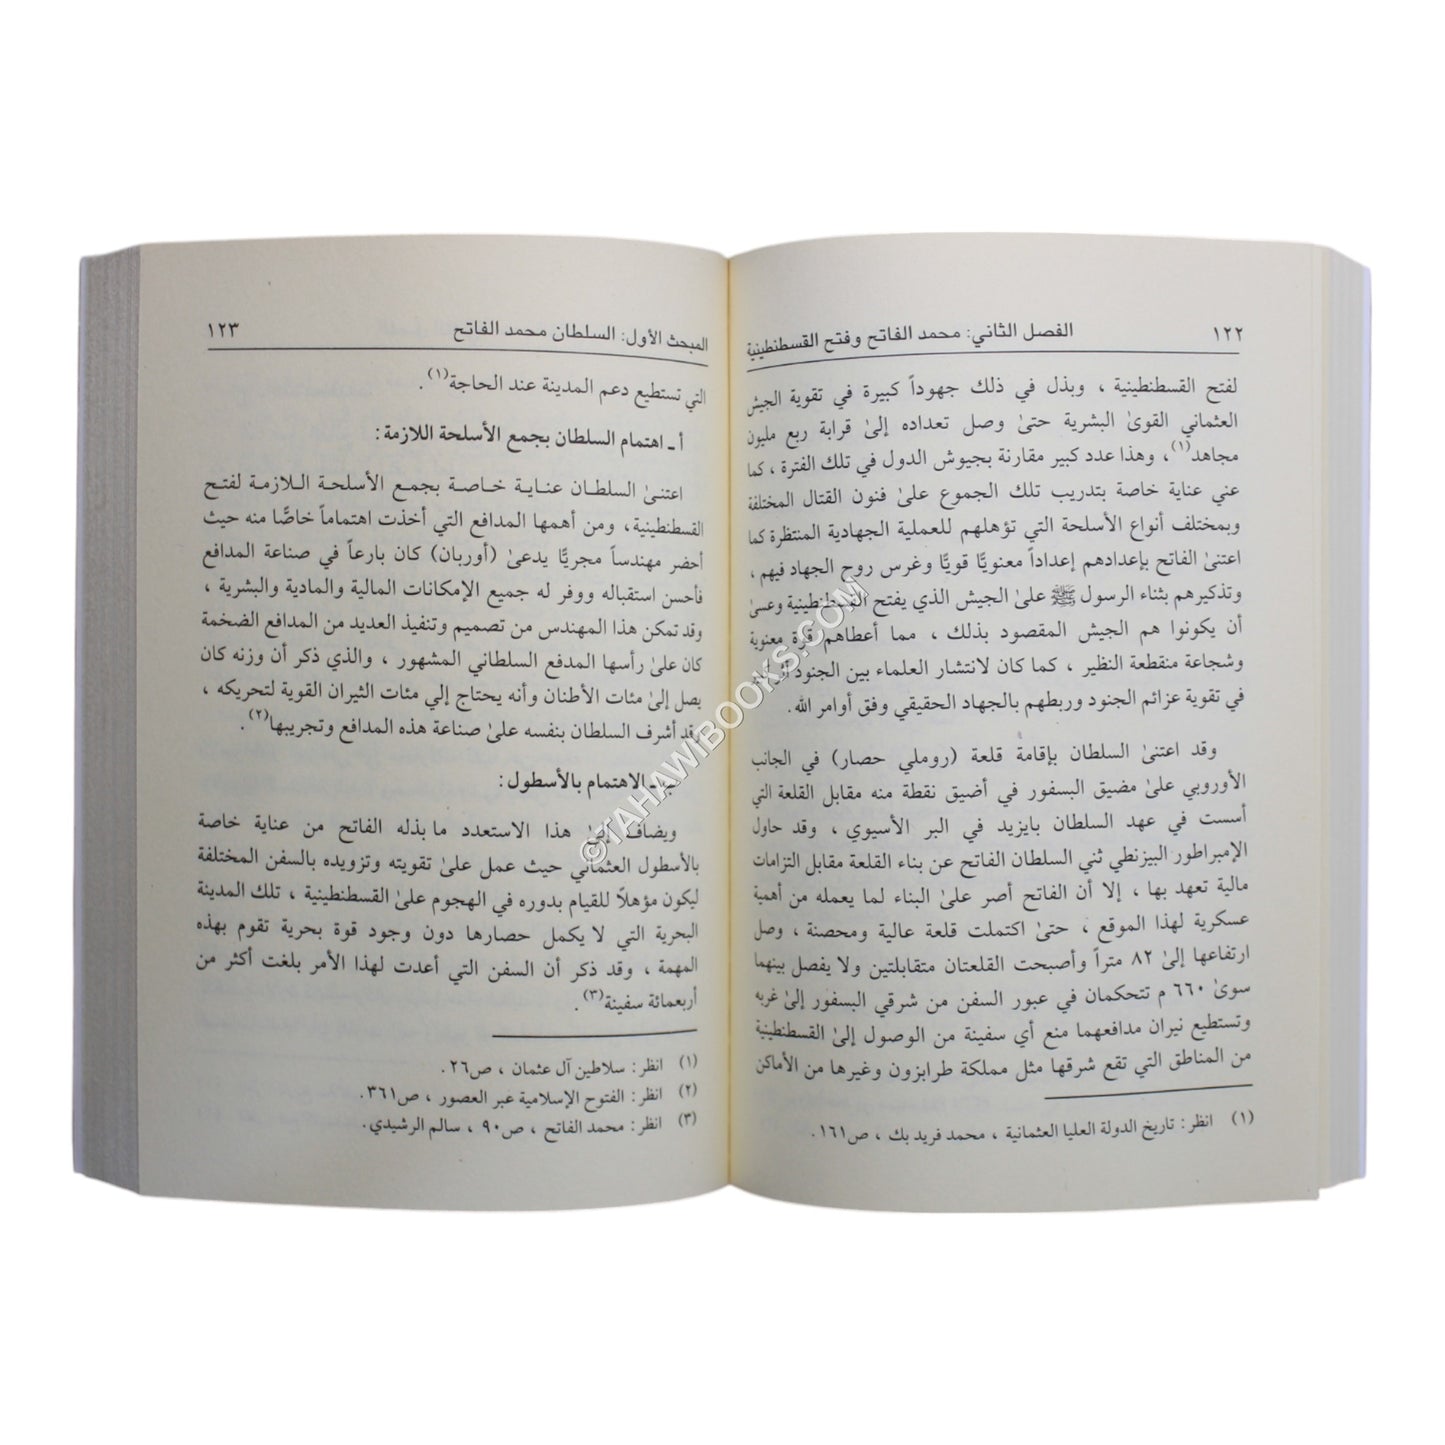 ١٢٢
الفصل الثاني: محمد الفاتح وفتح القسطنطينية
لفتح القسطنطينية ، وبذل في ذلك جهوداً كبيرة في تقوية الجيش
العثماني القوىٰ البشرية حتىٰ وصل تعداده إلىٰ قرابة ربع مليون
مجاهد(١)، وهذا عدد كبير مقارنة بجيوش الدول في تلك الفترة ، كما
عني عناية خاصة بتدريب تلك الجموع علىٰ فنون القتال المختلفة
وبمختلف أنواع الأسلحة التي تؤهلهم للعملية الجهادية المنتظرة كما
اعتنىٰ الفاتح بإعدادهم إعداداً معنويًّا قويًّا وغرس روح الجهاد فيهم ،
وتذكيرهم بثناء الرسول ﷺ علىٰ الجيش الذي يفتح القسطنطينية وعسىٰ
أن يكونوا هم الجيش المقصود بذلك ، مما أعطاهم قوة معنوية
وشجاعة منقطعة النظير ، كما كان لانتشار العلماء بين الجنود
في تقوية عزائم الجنود وربطهم بالجهاد الحقيقي وفق أوامر الله.
وقد اعتنىٰ السلطان بإقامة قلعة (روملي حصار) في الجانب
الأوروبي علىٰ مضيق البسفور في أضيق نقطة منه مقابل القلعة التي
أسست في عهد السلطان بايزيد في البر الأسيوي ، وقد حاول
الإمبراطور البيزنطي ثني السلطان الفاتح عن بناء القلعة مقابل التزامات
مالية تعهد بها ، إلا أن الفاتح أصر علىٰ البناء لما يعمله من أهمية
عسكرية لهذا الموقع ، حتىٰ اكتملت قلعة عالية ومحصنة ، وصل
ارتفاعها إلىٰ ٨٢ متراً وأصبحت القلعتان متقابلتين ولا يفصل بينهما
سوىٰ ٦٦٠ م تتحكمان في عبور السفن من شرقي البسفور إلىٰ غربه
وتستطيع نيران مدافعهما منع أي سفينة من الوصول إلىٰ القسطنطينية
من المناطق التي تقع شرقها مثل مملكة طرابزون وغيرها من الأماكن
(١) انظر: تاريخ الدولة العليا العثمانية ، محمد فريد بك ، ص١٦١.
المبحث الأول: السلطان محمد الفاتح
١٢٣
التي تستطيع دعم المدينة عند الحاجة(١).
أ ـ اهتمام السلطان بجمع الأسلحة اللازمة:
اعتنىٰ السلطان عناية خاصة بجمع الأسلحة اللازمة لفتح
القسطنطينية، ومن أهمها المدافع التي أخذت اهتماماً خاصًّا منه حيث
أحضر مهندساً مجريًّا يدعىٰ (أوربان) كان بارعاً في صناعة المدافع
فأحسن استقباله ووفر له جميع الإمكانات المالية والمادية والبشرية ،
وقد تمكن هذا المهندس من تصميم وتنفيذ العديد من المدافع الضخمة
كان علىٰ رأسها المدفع السلطاني المشهور ، والذي ذكر أن وزنه كان
يصل إلىٰ مئات الأطنان وأنه يحتاج إلي مئات الثيران القوية لتحريكه ،
وقد أشرف السلطان بنفسه علىٰ صناعة هذه المدافع وتجريبها(٢).
ب ـ الاهتمام بالأسطول:
ويضاف إلىٰ هذا الاستعدد ما بذله الفاتح من عناية خاصة
بالأسطول العثماني حيث عمل علىٰ تقويته وتزويده بالسفن المختلفة
ليكون مؤهلاً للقيام بدوره في الهجوم علىٰ القسطنطينية ، تلك المدينة
البحرية التي لا يكمل حصارها دون وجود قوة بحرية تقوم بهذه
المهمة ، وقد ذكر أن السفن التي أعدت لهذا الأمر بلغت أكثر من
أربعمائة سفينة(٣).
(١) انظر: سلاطين آل عثمان ، ص٢٦.
(٢) انظر: الفتوح الإسلامية عبر العصور ، ص٣٦١.
(٣) انظر: محمد الفاتح ، ص٩٠ ، سالم الرشيدي.
©TAHAWIBOOKS.COM